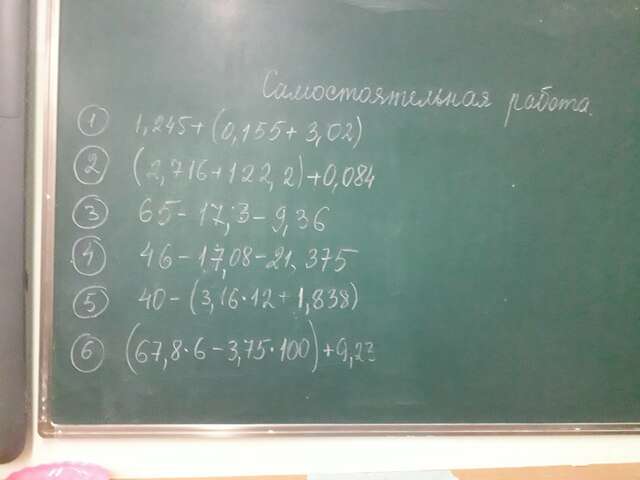 Самостоятельная работа.
1 1,245+(0,155+3,02)
2 (2,716+122,2)+0,084
3 65-17,3-9,36
4 46-17,08-21,375
5 40-(3,16·12+1,838)
6 (67,8·6-3,75·100)+9,23